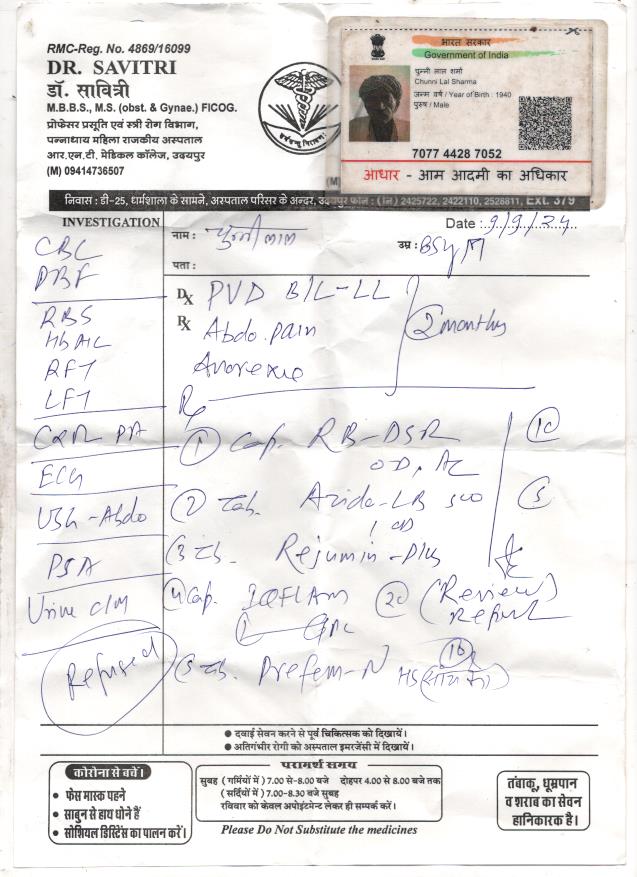 RMC-Reg. No. 4869/16099
DR. SAVITRI
डॉ. सावित्री
M.B.B.S., M.S. (obst. & Gynae.) FICOG.
प्रोफेसर प्रसूति एवं स्त्री रोग विभाग,
पन्नाधाय महिला राजकीय अस्पताल
आर.एन.टी. मेडिकल कॉलेज, उदयपुर
(M) 09414736507
भारत सरकार
Government of India
चुन्नी लाल शर्मा
Chunni Lal Sharma
जन्म वर्ष / Year of Birth : 1940
पुरुष / Male
7077 4428 7052
आधार - आम आदमी का अधिकार
निवास : डी-25, धर्मशाला के सामने, अस्पताल परिसर के अन्दर, फोन : (नि.) 2425722, 2422110, 2528811, Ext. 379
INVESTIGATION
नाम : चुन्नीलाल
Date : 9/9/24
उम्र : 85y M
पता :
CBC
PBF
RBS
HbA1C
RFT
LFT
CXR PA
ECG
USG-Abdo
PSA
Urine C/M
Refused
Dx PVD B/L-LL
Rx Abdo. pain
Anorexie
2 months
Rx
1 Cap. RB-DSR 10
OD, AC
2 Tab. Azido-LB 500 5
1 OD
3 Tb. Rejumin-Plus
4 Cap. IQFLAM 20 (Review) Report
5 Tb. Prefem-N HS 10
● दवाई सेवन करने से पूर्व चिकित्सक को दिखायें।
● अतिगंभीर रोगी को अस्पताल इमरजेंसी में दिखायें।
कोरोना से बचें।
• फेस मास्क पहने
• साबुन से हाथ धोने हैं
• सोशियल डिस्टेंस का पालन करें।
परामर्श समय
सुबह (गर्मियों में) 7.00 से-8.00 बजे दोहपर 4.00 से 8.00 बजे तक
(सर्दियों में) 7.00-8.30 बजे सुबह
रविवार को केवल अपोइंटमेंट लेकर ही सम्पर्क करें।
Please Do Not Substitute the medicines
तंबाकू, धूम्रपान
व शराब का सेवन
हानिकारक है।